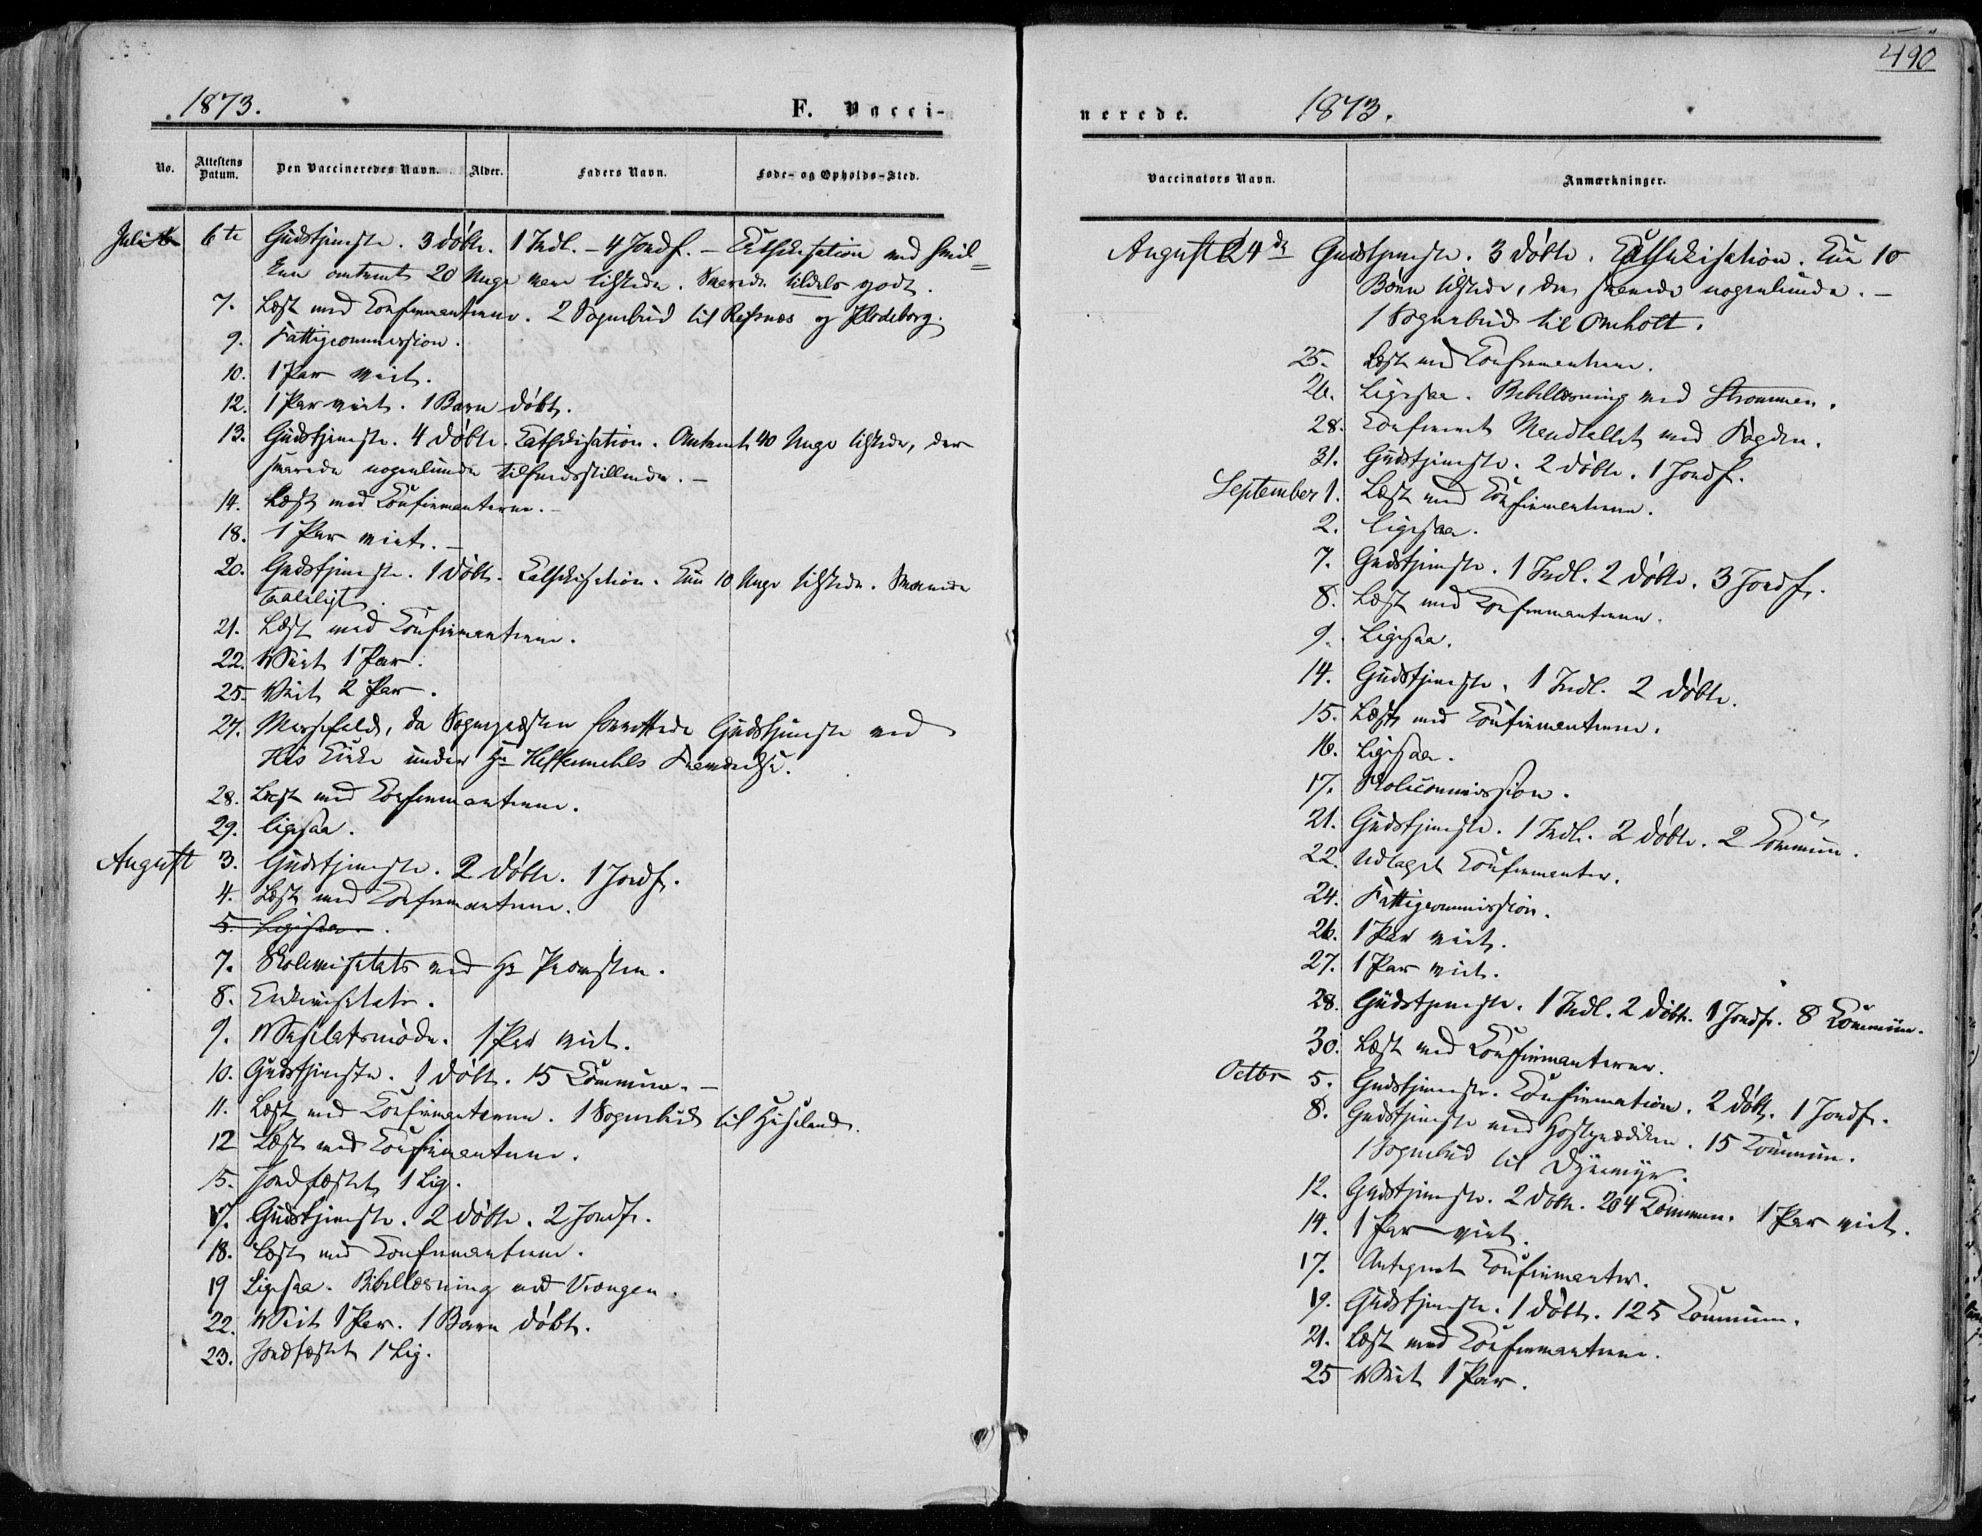 1873.
F. Vacci-
No.
Attestens Datum.
Den Vaccineredes Navn.
Alder.
Faders Navn.
Føde- og Opholds-Sted.
Juli 6te Gudstjeneste. 3 døbte. 1 Indl. – 4 Jordf. – Cathekisation med
omtrent 20 Unge vare tilstede. Svarede tildels godt.
7. Læst med Confirmanterne. 2 Sognebud til Refsnæs og Flødeborg.
9. Fattigcommission.
10. 1 Par viet.
12. 1 Par viet. 1 Barn døbt.
13. Gudstjeneste. 4 døbte. Cathekisation. Omtrent 40 Unge tilstede, der
svarede nogenlunde tilfredsstillende. –
14. Læst med Confirmanterne. –
18. 1 Par viet. –
20. Gudstjeneste. 1 døbt. Cathekisation. Kun 10 Unge tilstede. Svarede
taaleligt.
21. Læst med Confirmanterne.
22. Viet 1 Par.
25. Viet 2 Par.
27. Messefald, da Sognepræsten forrettede Gudstjeneste ved
His Kirke under Hr Heffermehls Fraværelse.
28. Læst med Confirmanterne.
29. ligesaa.
August 3. Gudstjeneste. 2 døbte. 1 Jordf.
4. Læst med Confirmanterne.
5. Ligesaa.
7. Skolevisitats ved Hr Provsten.
8. Kirkevisitats.
9. Visitatsmøde. 1 Par viet.
10. Gudstjeneste. 1 døbt. 15 Commun. –
11. Læst med Confirmanterne. 1 Sognebud til Hisland.
12 Læst med Confirmanterne.
15. Jordfæstet 1 Lig.
17. Gudstjeneste. 2 døbte. 2 Jordf.
18. Læst med Confirmanterne.
19 Ligesaa. Bibellæsning ved Vrængen.
22. Viet 1 Par. 1 Barn døbt.
23. Jordfæstet 1 Lig.
490
nerede.
1873.
Vaccinators Navn.
Anmærkninger.
August 24de Gudstjeneste. 3 døbte. Cathekisation. Kun 10
Børn tilstede, der svarede nogenlunde. –
1 Sognebud til Omholt.
25. Læst med Confirmanterne.
26. Ligesaa. Bibellæsning ved Strømmen.
28. Confereret Mandtallet med Fogden.
31. Gudstjeneste. 2 døbte. 1 Jordf.
September 1. Læst med Confirmanterne.
2. Ligesaa.
7. Gudstjeneste. 1 Indl. 2 døbte. 3 Jordf.
8. Læst med Confirmanterne.
9. Ligesaa.
14. Gudstjeneste. 1 Indl. 2 døbte.
15. Læst med Confirmanterne.
16. Ligesaa.
17. Skolecommission.
21. Gudstjeneste. 1 Indl. 2 døbte. 2 Commun.
22. Udtaget Confirmanter.
24. Fattigcommission.
26. 1 Par viet.
27. 1 Par viet.
28. Gudstjeneste. 1 Indl. 2 døbt. 1 Jordf. 8 Commun.
30. Læst med Confirmanterne.
Octbr 5. Gudstjeneste. Confirmation. 2 døbt. 1 Jordf.
8. Gudstjeneste med Høstprædiken. 15 Commun.
1 Sognebud til Dynemyr.
12. Gudstjeneste. 2 døbte. 204 Commun. 1 Par viet.
14. 1 Par viet.
17. Antegnet Confirmanter.
19. Gudstjeneste. 1 døbt. 125 Commun.
21. Læst med Confirmanterne.
25 Viet 1 Par.